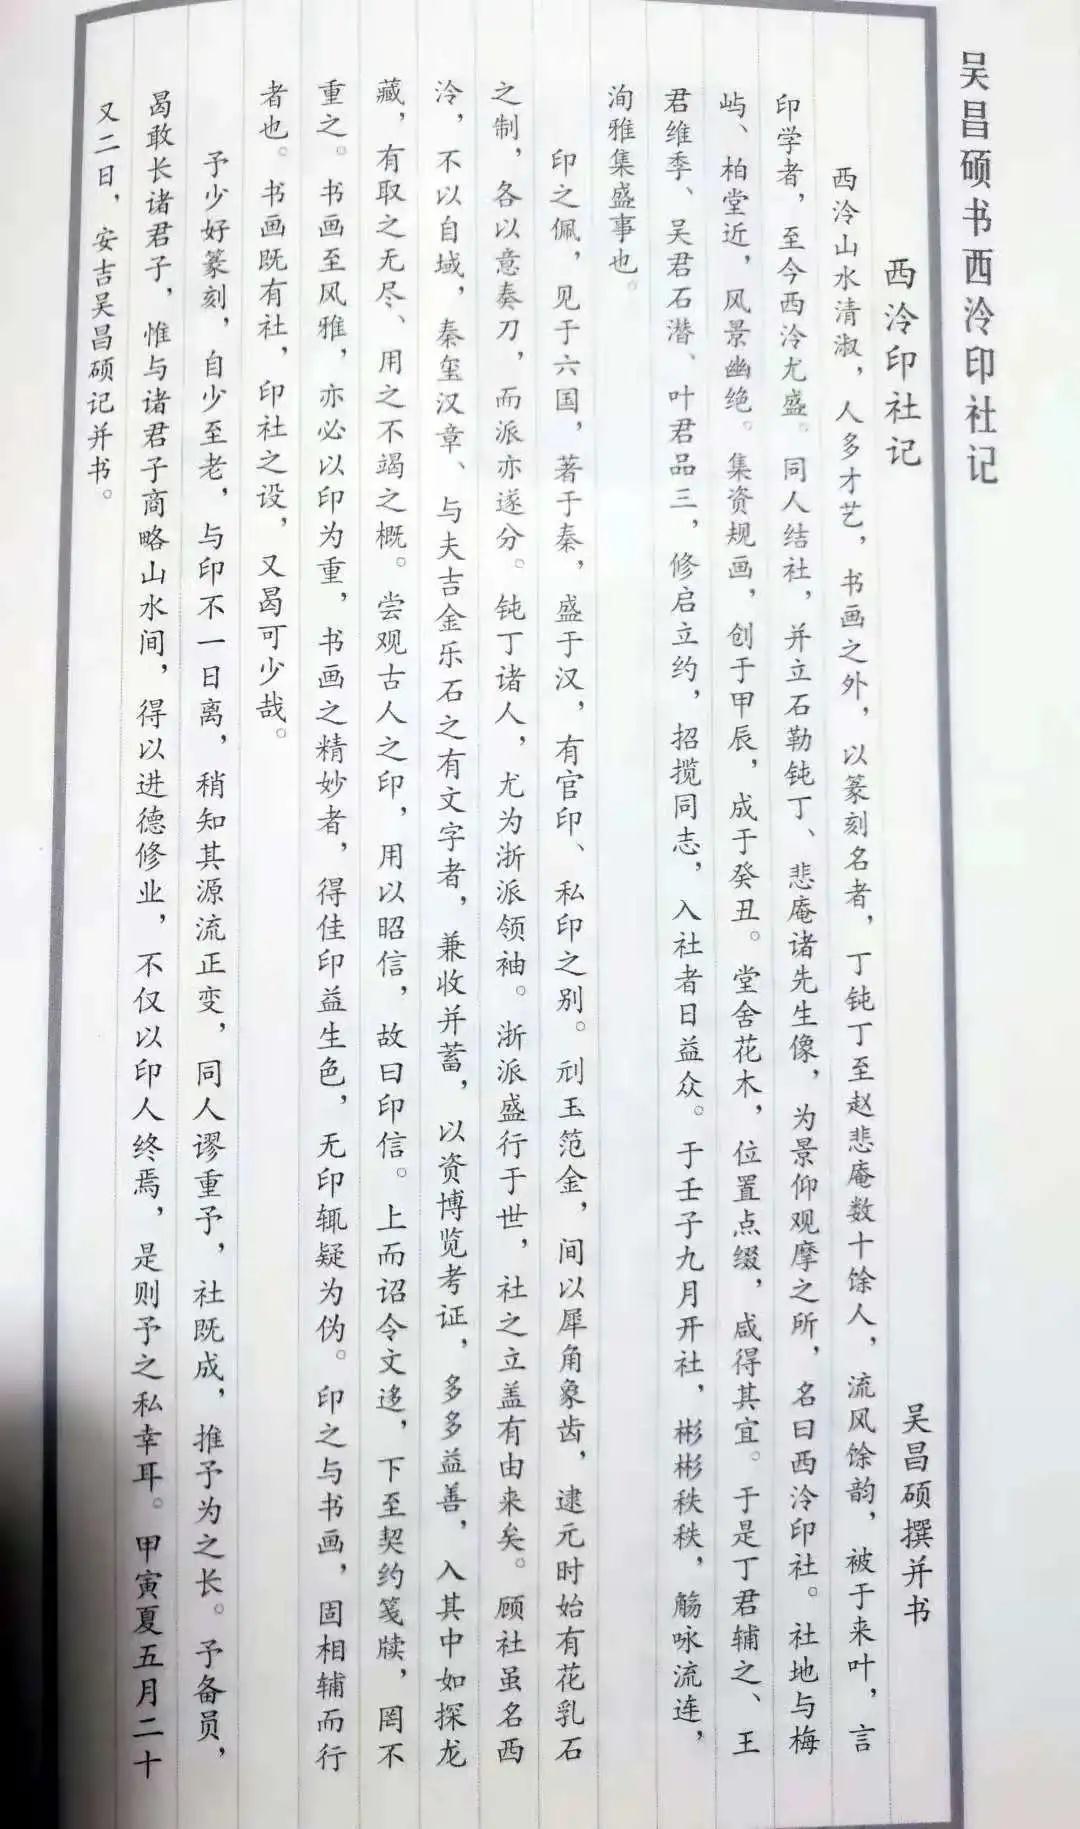 吴昌硕书西泠印社记
西泠印社记
吴昌硕撰并书
西泠山水清淑，人多才艺，书画之外，以篆刻名者，丁钝丁至赵悲庵数十馀人，流风馀韵，被于来叶，言
印学者，至今西泠尤盛。同人结社，并立石勒钝丁、悲庵诸先生像，为景仰观摩之所，名曰西泠印社。社地与梅
屿、柏堂近，风景幽绝。集资规画，创于甲辰，成于癸丑。堂舍花木，位置点缀，咸得其宜。于是丁君辅之、王
君维季、吴君石潜、叶君品三，修启立约，招揽同志，入社者日益众。于壬子九月开社，彬彬秩秩，觞咏流连，
洵雅集盛事也。
印之佩，见于六国，著于秦，盛于汉，有官印、私印之别。刓玉范金，间以犀角象齿，逮元时始有花乳石
之制，各以意奏刀，而派亦遂分。钝丁诸人，尤为浙派领袖。浙派盛行于世，社之立盖有由来矣。顾社虽名西
泠，不以自域，秦玺汉章、与夫吉金乐石之有文字者，兼收并蓄，以资博览考证，多多益善，入其中如探龙
藏，有取之无尽、用之不竭之概。尝观古人之印，用以昭信，故曰印信。上而诏令文迻，下至契约笺牍，罔不
重之。书画至风雅，亦必以印为重，书画之精妙者，得佳印益生色，无印辄疑为伪。印之与书画，固相辅而行
者也。书画既有社，印社之设，又曷可少哉。
予少好篆刻，自少至老，与印不一日离，稍知其源流正变，同人谬重予，社既成，推予为之长。予备员，
曷敢长诸君子，惟与诸君子商略山水间，得以进德修业，不仅以印人终焉，是则予之私幸耳。甲寅夏五月二十
又二日，安吉吴昌硕记并书。